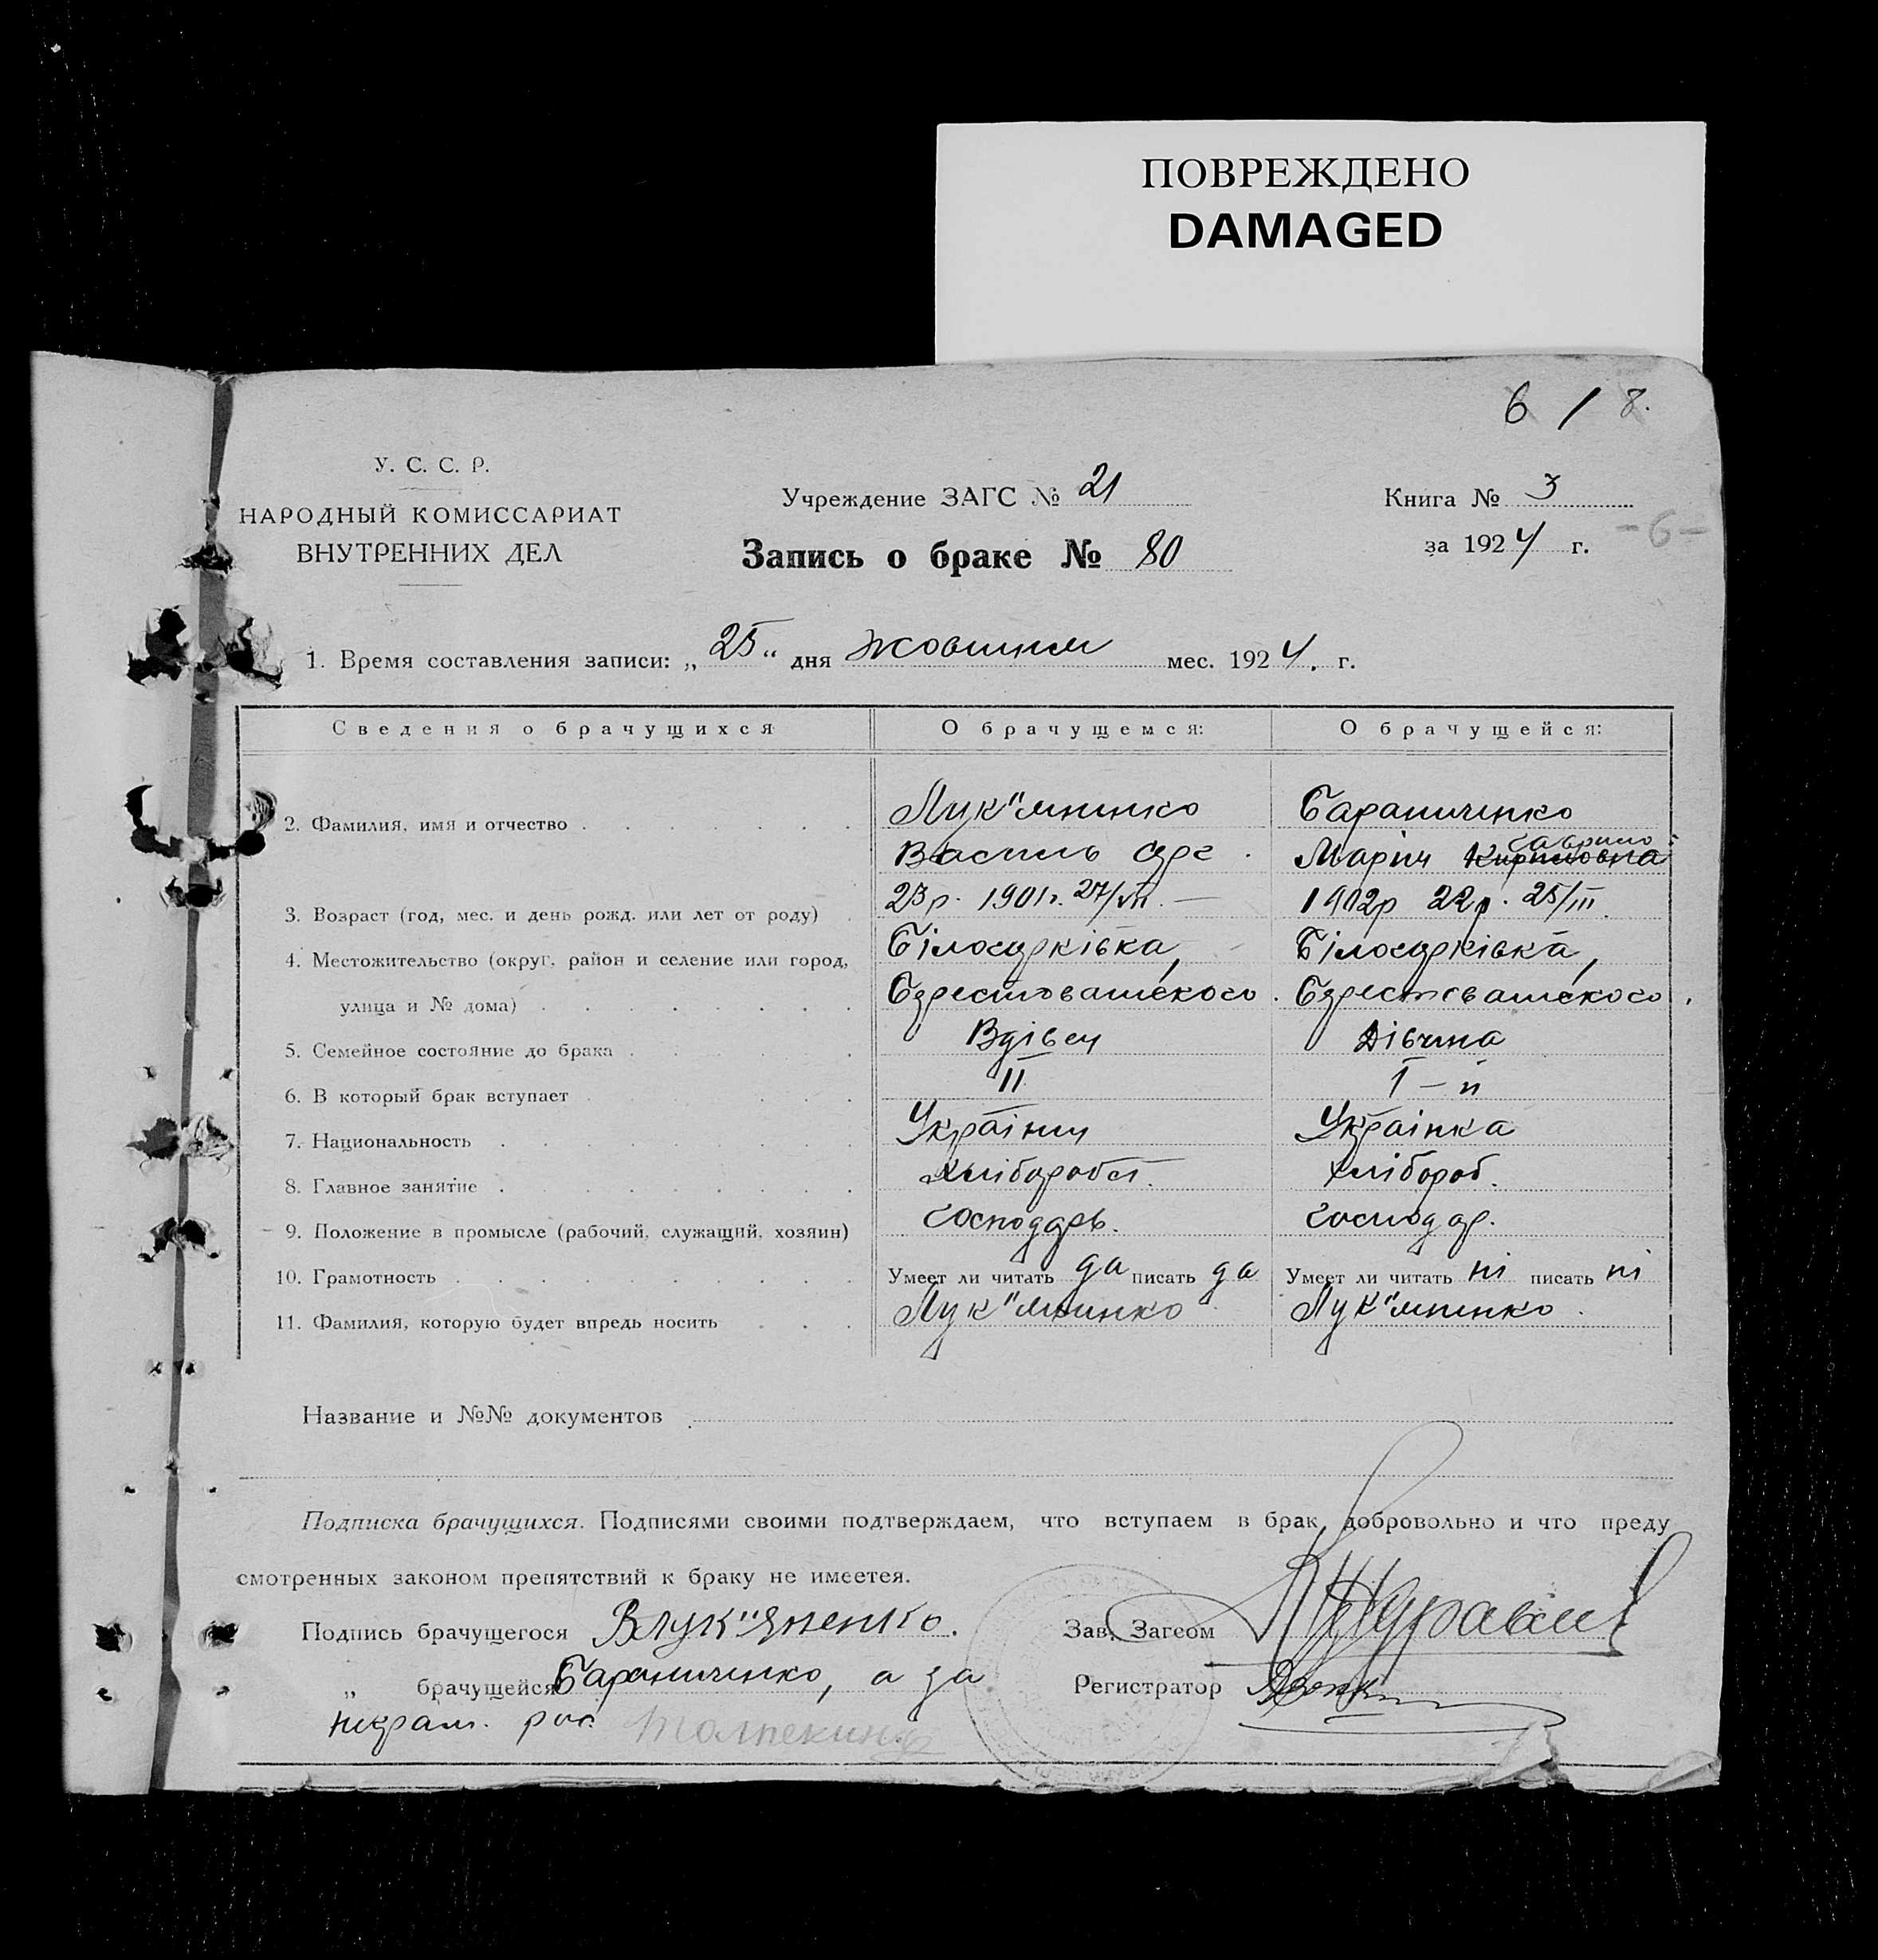 ПОВРЕЖДЕНО
DAMAGED
6 / 8.
У. С. С. Р.
НАРОДНЫЙ КОМИССАРИАТ
ВНУТРЕННИХ ДЕЛ
Учреждение ЗАГС № 21
Запись о браке № 80
Книга № 3
за 1924 г.
-6-
1. Время составления записи: „25“ дня жовтня мес. 1924. г.
Сведения о брачущихся О брачущемся: О брачущейся:
2. Фамилия, имя и отчество Лук"яненко Бараниченко
Василь Марія Гаврило Кириловна
3. Возраст (год, мес. и день рожд. или лет от роду) 23р. 1901р. 27/VII. 1902р 22р. 25/III
4. Местожительство (округ, район и селение или город, Білоцерківка, Білоцерківка,
улица и № дома)
5. Семейное состояние до брака Вдівец Дівчина
6. В который брак вступает II I-й
7. Национальность Українец Українка
8. Главное занятие Хлібороб.
9. Положение в промысле (рабочий, служащий, хозяин) господарь. господар.
10. Грамотность Умеет ли читать да писать да Умеет ли читать ні писать ні
11. Фамилия, которую будет впредь носить Лук"яненко Лук"яненко
Название и №№ документов
Подписка брачущихся. Подписями своими подтверждаем, что вступаем в брак добровольно и что преду
смотренных законом препятствий к браку не имеетея.
Подпись брачущегося ВЛук"яненко.
Зав. Загсом
„ брачущейся Бараниченко, а за
Регистратор
неграм. рос.